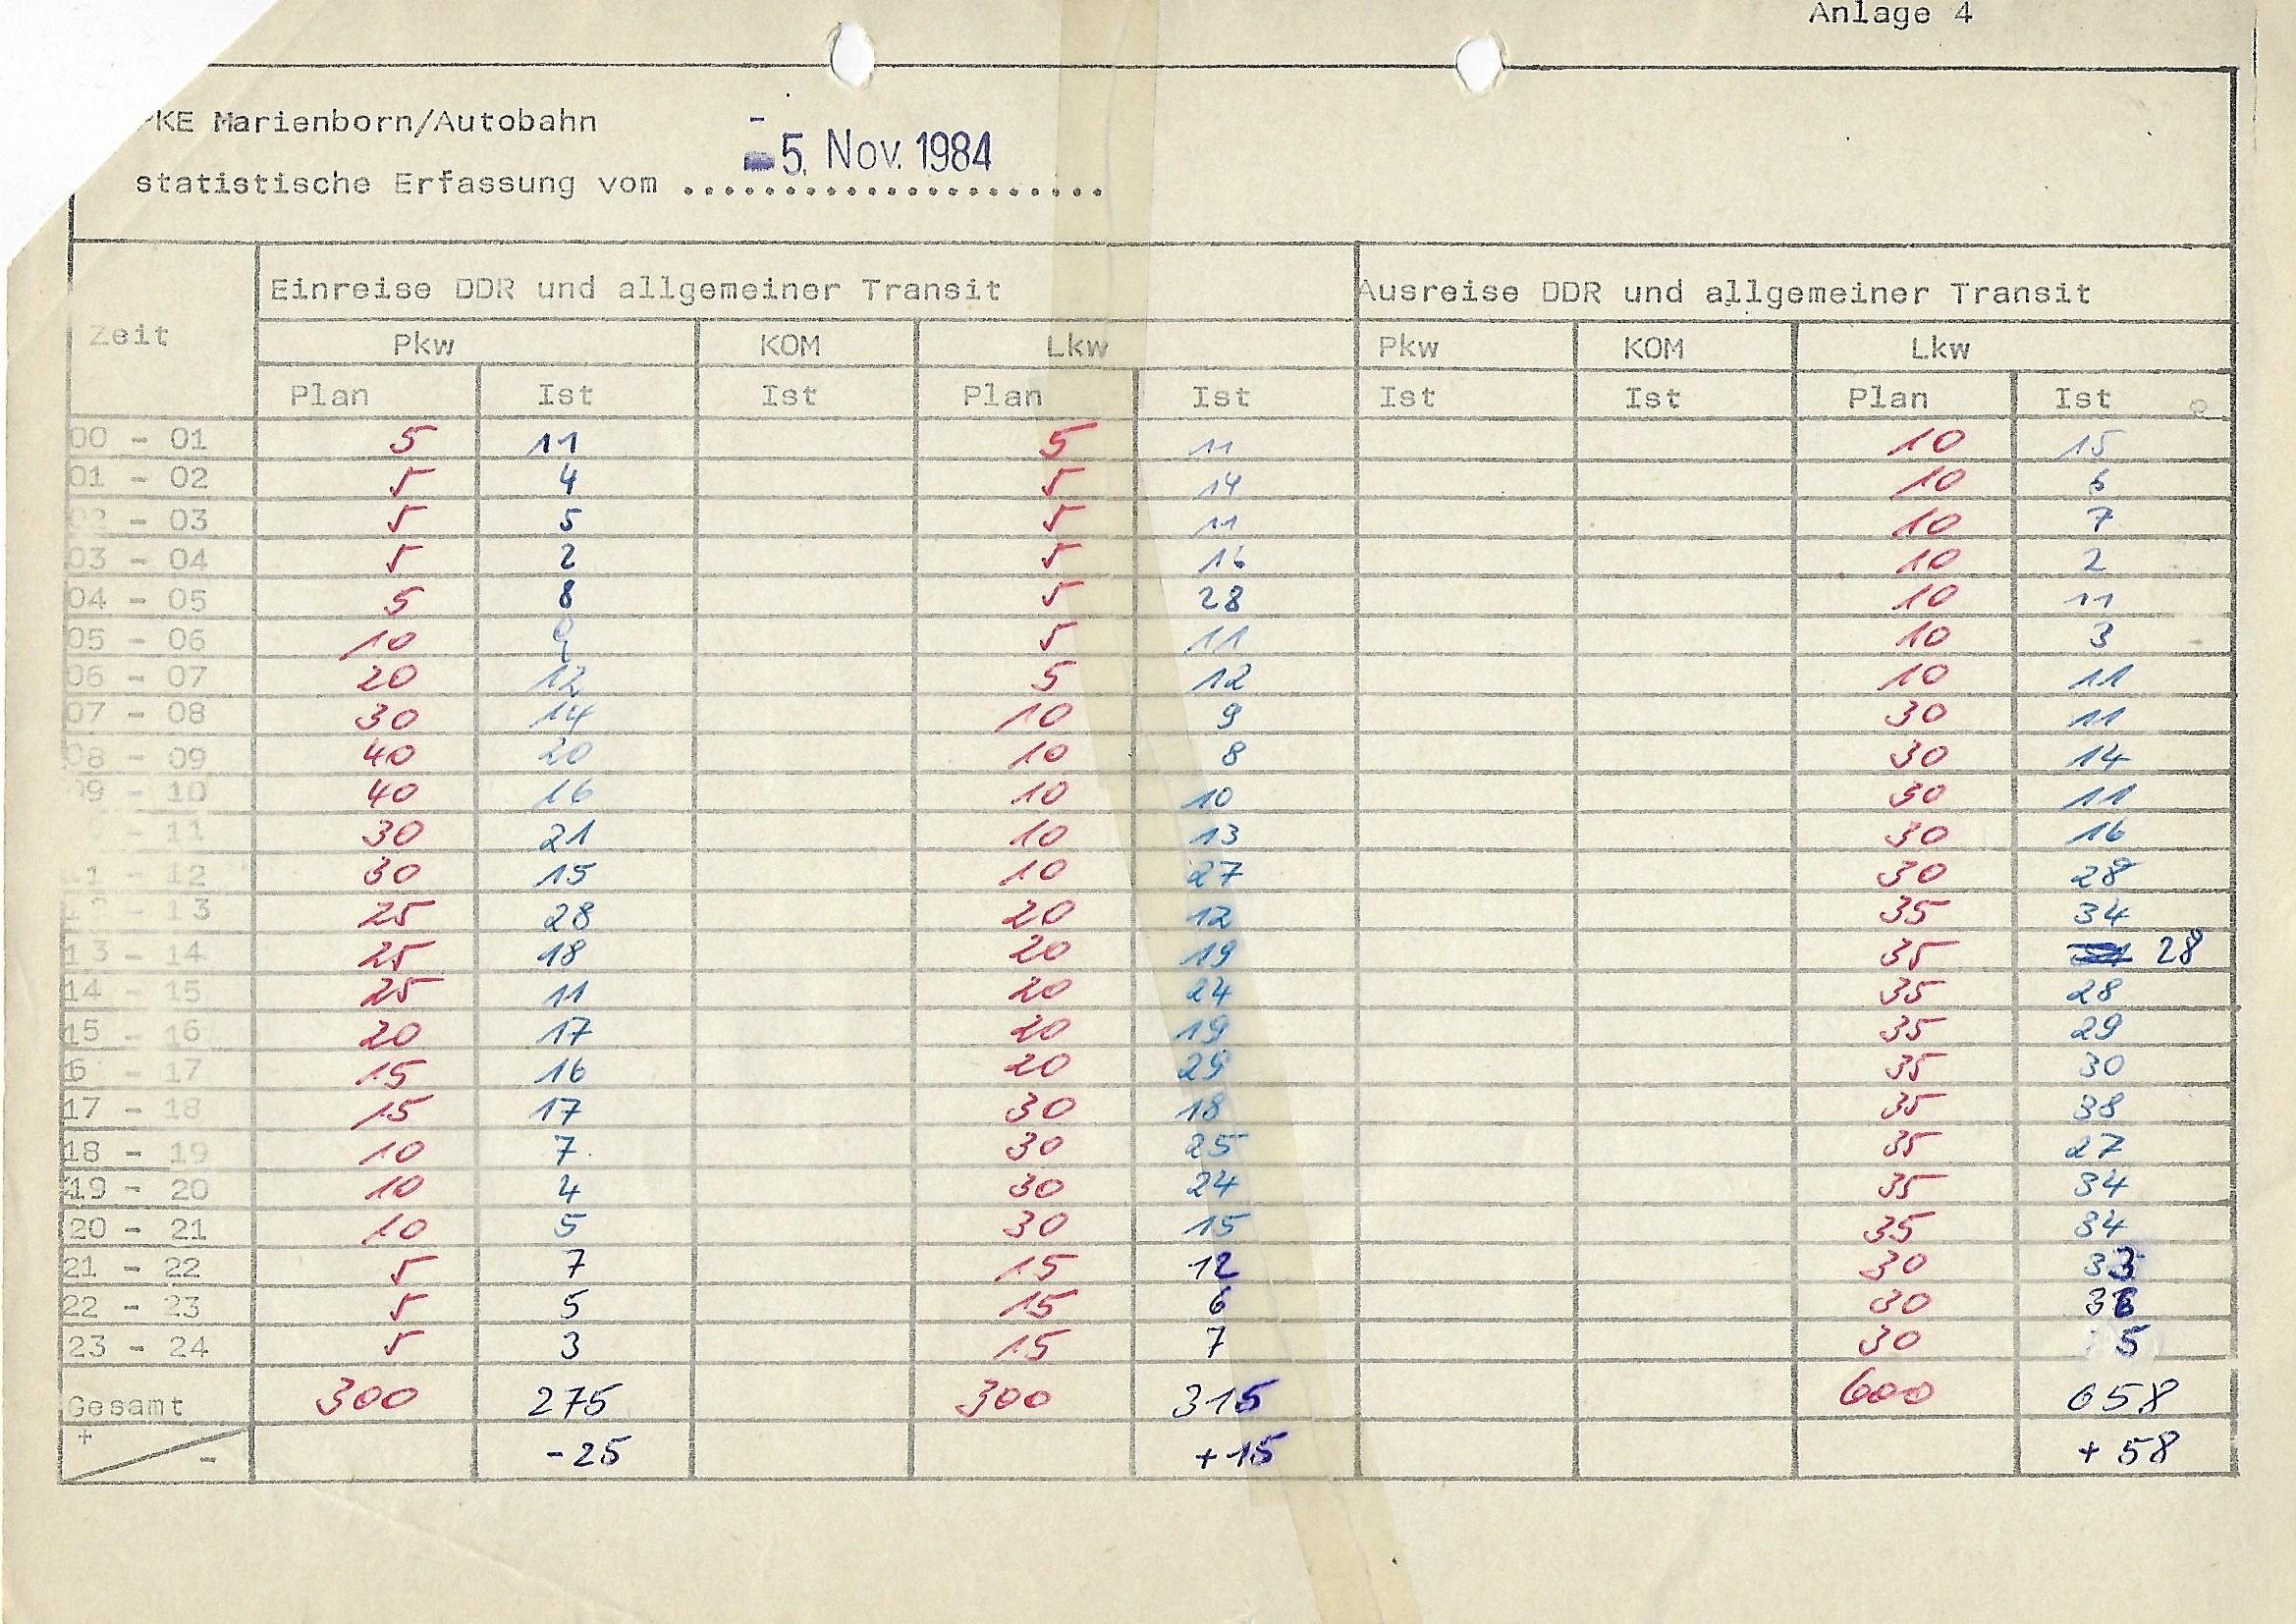 Anlage 4
PKE Marienborn/Autobahn
-5. Nov. 1984
statistische Erfassung vom ......................
Zeit Einreise DDR und allgemeiner Transit Ausreise DDR und allgemeiner Transit
Pkw KOM Lkw Pkw KOM Lkw
Plan Ist Ist Plan Ist Ist Ist Plan Ist
00 - 01 5 11 5 11 10 15
01 - 02 5 4 5 14 10 6
02 - 03 5 5 5 11 10 7
03 - 04 5 2 5 16 10 2
04 - 05 5 8 5 28 10 11
05 - 06 10 9 5 11 10 3
06 - 07 20 12 5 12 10 11
07 - 08 30 14 10 9 30 11
08 - 09 40 20 10 8 30 14
09 - 10 40 16 10 10 30 11
- 11 30 21 10 13 30 16
11 - 12 30 15 10 27 30 28
12 - 13 25 28 20 12 35 34
13 - 14 25 18 20 19 35 28
14 - 15 25 11 20 24 35 28
15 - 16 20 17 20 19 35 29
6 - 17 15 16 20 29 35 30
17 - 18 15 17 30 18 35 38
18 - 19 10 7 30 25 35 27
19 - 20 10 4 30 24 35 34
20 - 21 10 5 30 15 35 34
21 - 22 5 7 15 12 30 33
22 - 23 5 5 15 6 30
23 - 24 5 3 15 7 30 5
Gesamt 300 275 300 315 600 658
+ - -25 +15 +58